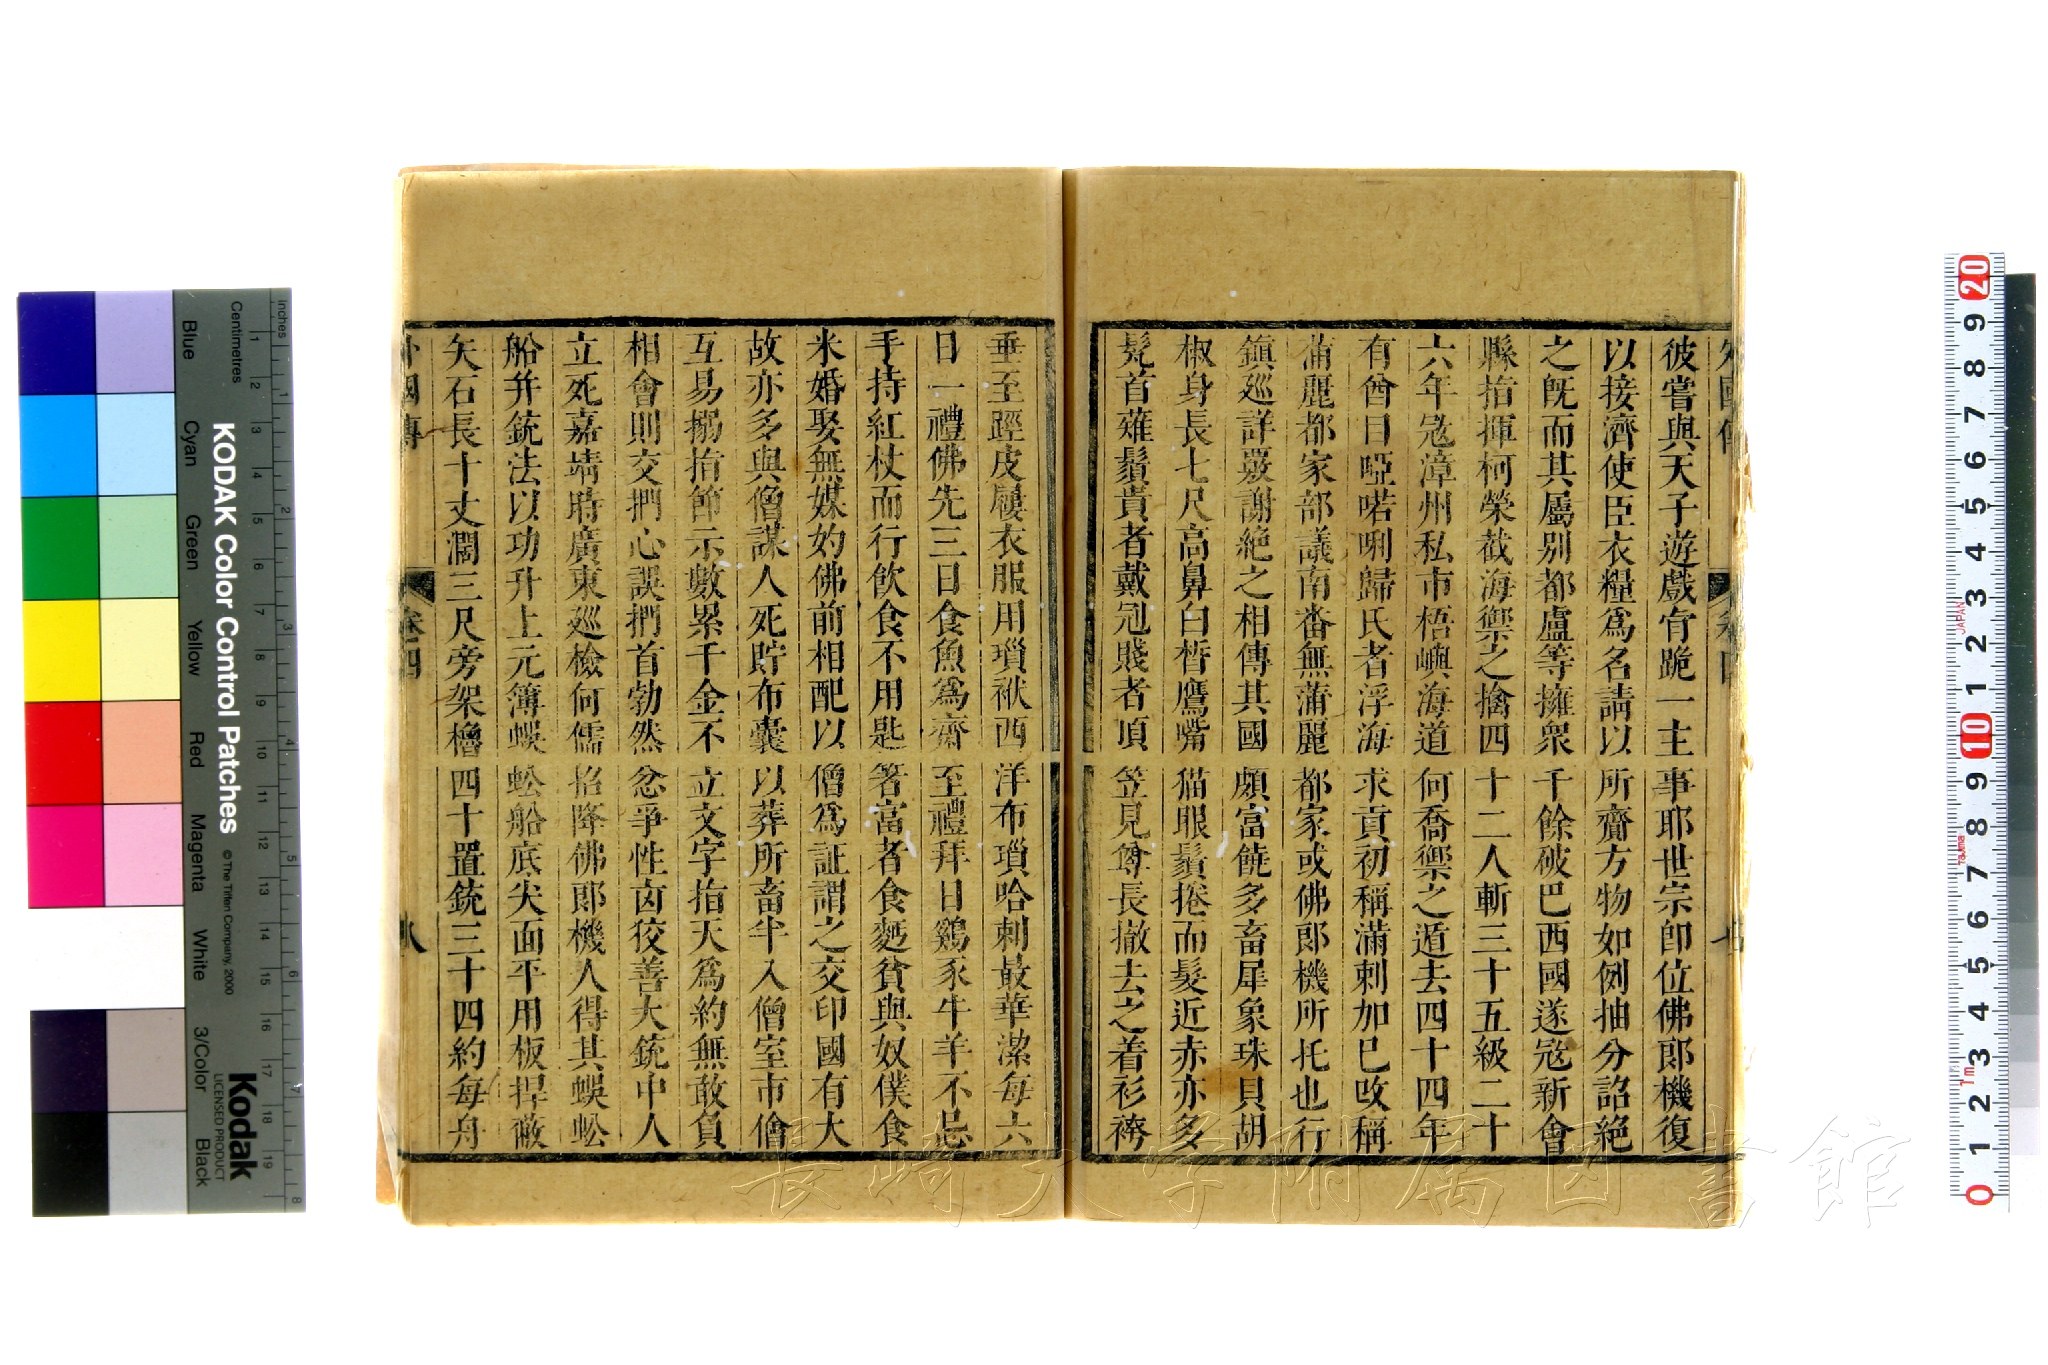 外國傳 卷四 七
彼嘗與天子遊戲肯跪一主事耶世宗即位佛郎機復
以接濟使臣衣糧爲名請以所齎方物如例抽分詔絕
之旣而其屬别都盧等擁衆千餘破巴西國遂宼新會
縣指揮柯榮截海禦之擒四十二人斬三十五級二十
六年宼漳州私市梧嶼海道何喬禦之遁去四十四年
有酋曰啞喏唎歸氏者浮海求貢初稱滿剌加巳改稱
蒲麗都家部議南番無蒲麗都家或佛郎機所托也行
鎮廵詳覈謝絕之相傳其國頗富饒多畜犀象珠貝胡
椒身長七尺高鼻白皙鷹嘴猫眼鬚捲而髮近赤亦多
髡首薙鬚貴者戴冠賤者頂笠見尊長撤去之着衫袴
垂至踁皮屨衣服用瑣袱西洋布瑣哈剌最華潔每六
日一禮佛先三日食魚爲齋至禮拜日鷄豕牛羊不忌
手持紅杖而行飲食不用匙箸富者食麫貧與奴僕食
米婚娶無媒妁佛前相配以僧爲証謂之交印國有大
故亦多與僧謀人死貯布囊以葬所畜半入僧室市儈
互易搦指節示數累千金不立文字指天爲約無敢負
相會則交捫心誤捫首勃然忿爭性卤狡善大銃中人
立死嘉靖時廣東廵檢何儒招降佛郎機人得其蜈蚣
船并銃法以功升上元簿蜈蚣船底尖面平用板捍蔽
矢石長十丈濶三尺旁架櫓四十置銃三十四約每舟
外國傳 卷四 八
長崎大学附属図書館
KODAK Color Control Patches
© The Tiffen Company, 2000
Kodak
LICENSED PRODUCT
Inches
Centimetres
Blue
Cyan
Green
Yellow
Red
Magenta
White
3/Color
Black
JAPAN